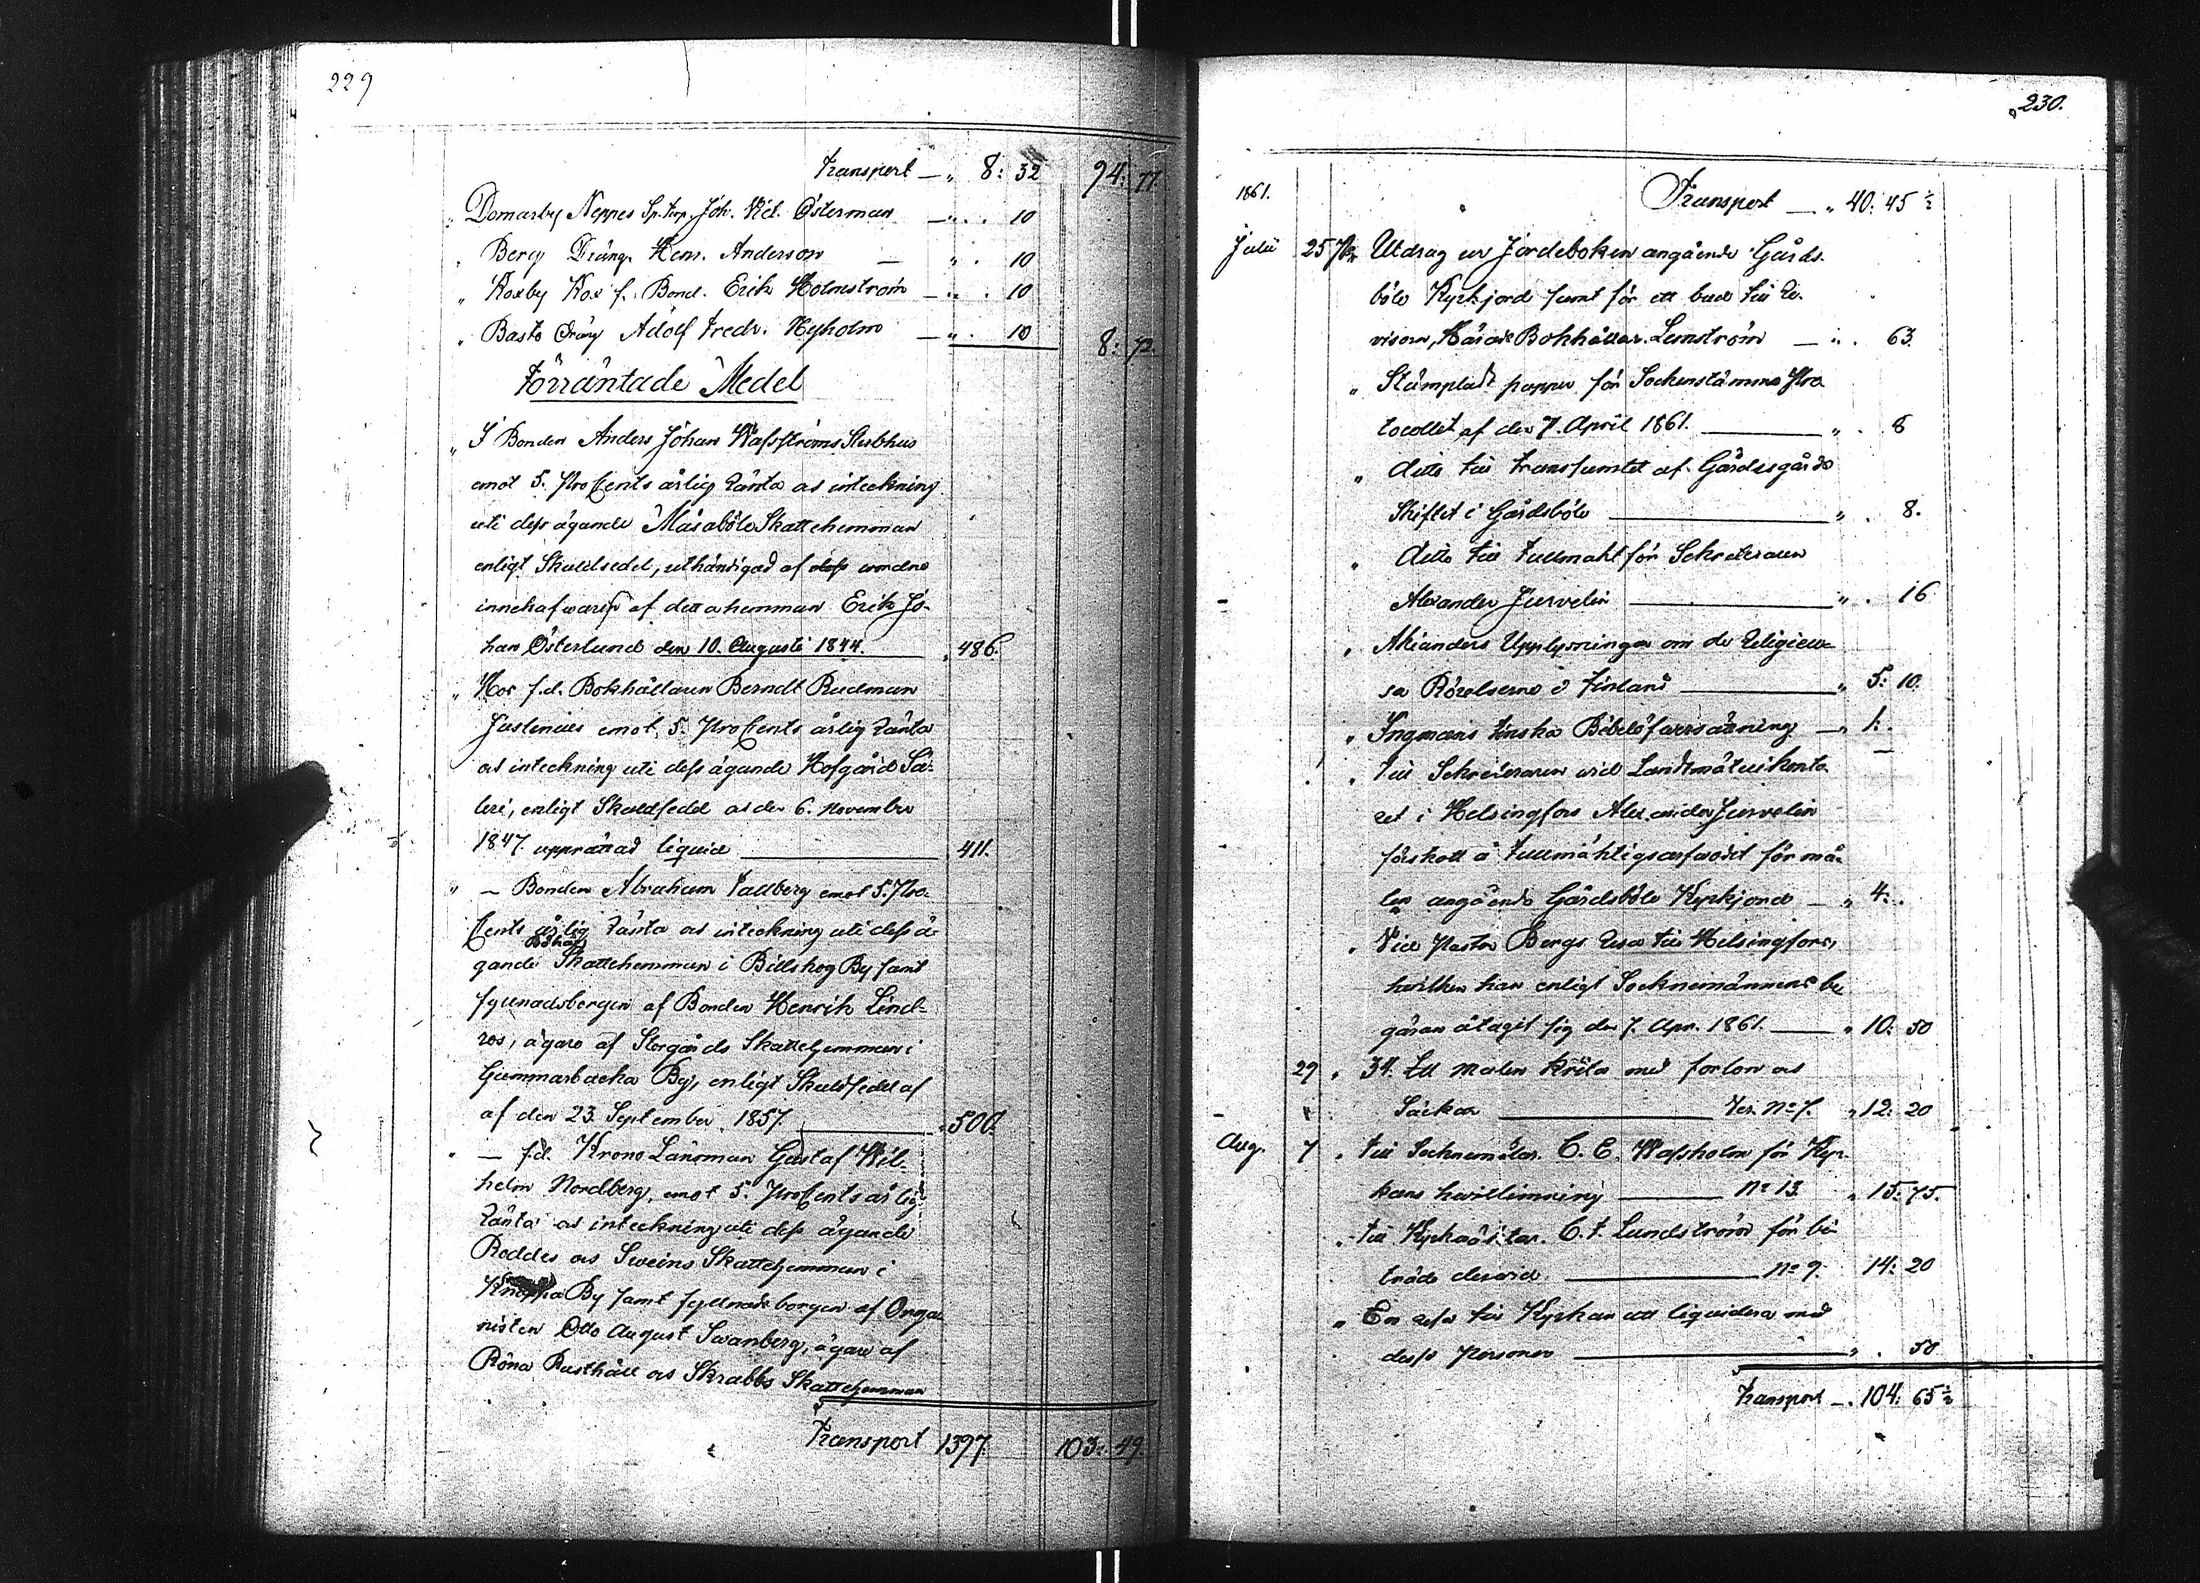 229
Transport — " 8: 32 94: 77
" Domarby Neppes Sp.torp. Joh. Vict. Österman — " . 10
" Berg Dräng. Henr. Anderson — " . 10
" Koxby Kox f. Bond. Erik Holmström — " . 10
" Basto Dräng Adolf Fredr. Nyholm — " . 10 8: 72.
Förräntade Medel
" I Bonden Anders Johan Wassströms Sterbhus
emot 5. ProCents årlig ränta os inteckning
uti dess ägande Måsaböle Skattehemman
enligt Skuldsedel, uthändigad af dess
innehafwaren af detta hemman Erik Jo-
han Österlund den 10. Augusti 1844. " 486.
" Hos f.d. Bokhållaren Berndt Rudman
Justenius emot 5. ProCents årlig ränta
os inteckning uti dess ägande Hofgård Sä-
teri, enligt Skuldsedel os den 6. November
1847. uppräknad liquid 411.
" — Bonden Abraham Fallberg emot 5. Pro-
Cents årlig ränta os inteckning uti dess ä-
gande Skattehemman i Billskog By samt
fyllnadsborgen af Bonden Henrik Lind-
ros, ägare af Storgårds Skattehemman i
Gummarbacka By, enligt Skuldsedel af
af den 23. September 1857. " 500.
" — f.d. Krono Länsman Gustaf Wil-
helm Nordberg, emot 5. ProCents årlig
ränta os inteckning uti dess ägande
Roddes os Sweins Skattehemman i
By samt fyllnadsborgen af Orga-
nisten Otto August Swanberg, ägare af
Röna Rusthåll os Skrabbs Skattehemman
Transport 1397. 103: 49.
230.
1861. Transport — " 40: 45 ½
Julii 25 Utdrag ur Jordeboken angående Gårds-
böle Kyrkjord samt för ett bud till Re-
visorn, Härads Bokhållar. Lemström — " . 63.
" Stämpladt papper för Sockenstämmo Pro
tocollet af den 7. April 1861. " . 8
" ditto till transsumtet af Gärdesgårds
Skiftet i Gårdsböle " . 8.
" ditto till Fullmakt för Sekreteraren
Alexander Jurvelin " . 16
" Akianders Upplysningar om de Religieu-
sa Rörelserne i Finland " 5: 10.
" Ingmans finska Bibelöfversättning — " 1: .
" till Sekreteraren vid Landtmäterikonto-
ret i Helsingfors Alexander Jurvelin
förskott å Fullmäktigsarfvodet för må-
len angående Gårdsböle Kyrkjord — " 4: .
" Vice Pastor Bergs resa till Helsingfors,
hvilken han enligt Socknemännens be
gäran åtagit sig den 7. Apr. 1861. — " 10: 50
29 " 34. Ltt malen krita med forlon os
Säckar Ver. No 7. " 12: 20
Aug. 7 " till Sockenmålar. C. E. Wassholm för Kyr-
kans hvitlimning No 13. " 15: 75.
" till Kyrkovästar. C. F. Lundström för bi
träde dervid. No 9. 14: 20
" En resa till Kyrkan att liquidera med
dessa personer " . 50
Transport — . 104: 65 ½